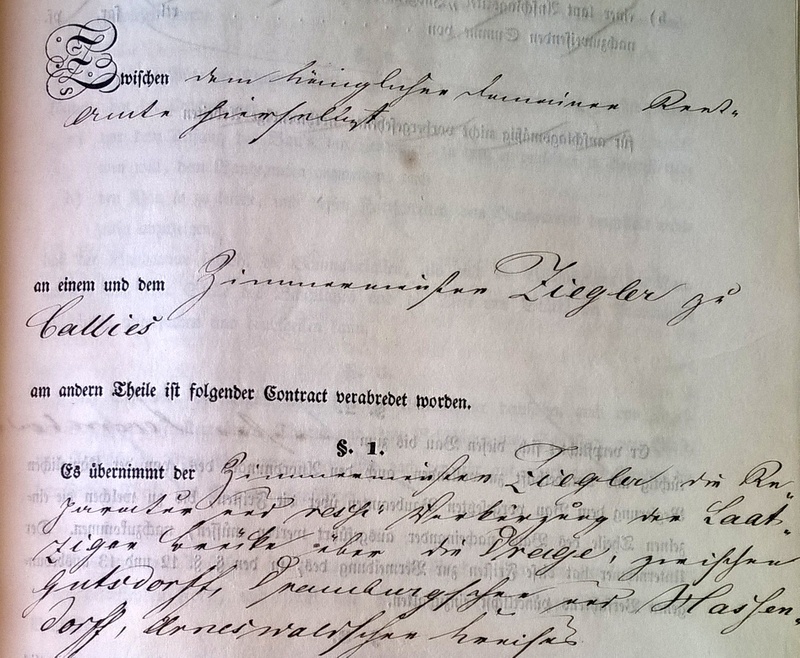 Zwischen dem Königlichen Domainen Rent-
Amte hierselbst
an einem und dem Zimmermeister Ziegler zu
Callies
am andern Theile ist folgender Contract verabredet worden.
§. 1.
Es übernimmt der Zimmermeister Ziegler die Re-
paratur und resp. Verkürzung der Laat-
ziger Brücke über die Drage, zwischen
Gutsdorff, Dramburgschen und Nassen-
dorff, Arneswaldschen Kreises